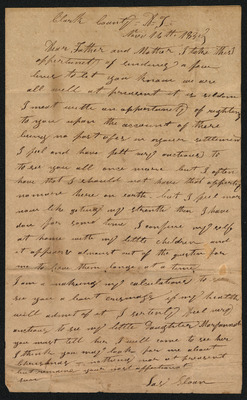 Clark County, W. T.
Nov 14th 18
Dear Father and Mother I take this
oppertunity of sending a few
lines to let you know we are
all well at pressent it is seldom
I meet with an oppertunity of wrighting
to you upon the account of there
being no part of
I feel and have felt very anctious to
to see you all once more but I often
fear that I should not have that oppertu
nity here on earth but I feel more
now like giting my strenth than I have
done for some time I confine my self
at home with my little children and
it appeers almost out of the question for
me to leave them long at a time
I am a makeing my calculations to
see you a bout if my health
will admit of it I certenly feel very
anctious to see my little Daughter
you must tell her I will come to see her
I think you may look for me about
nothing more at pressent
but remains your most
Jas Sloan